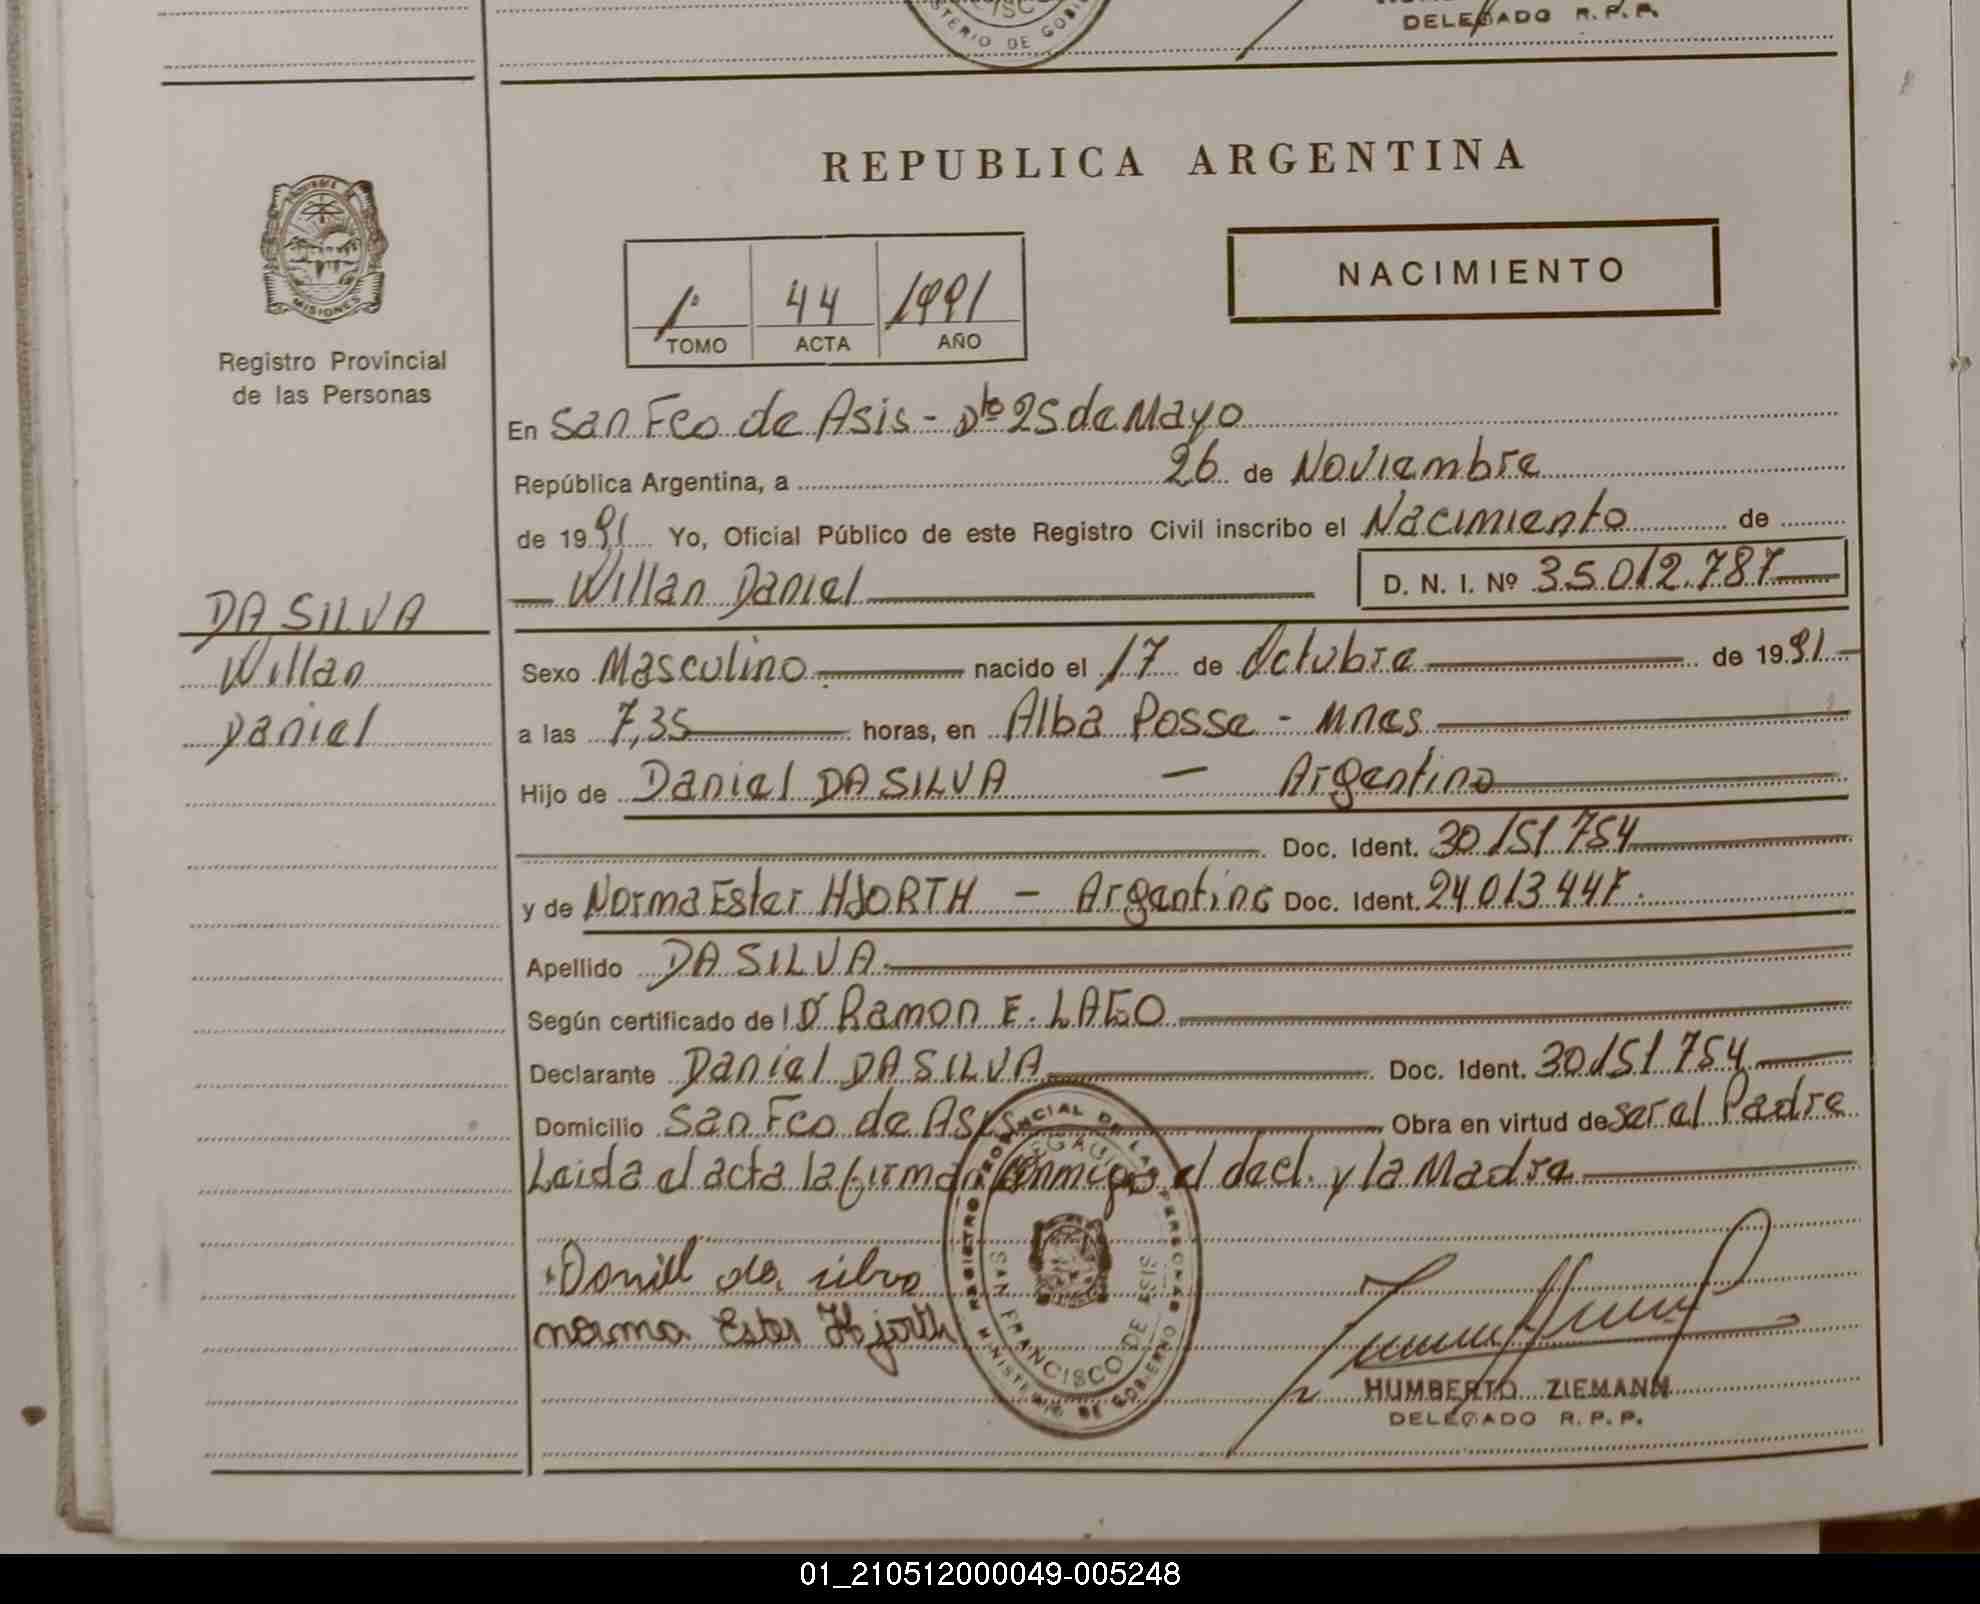 DELEGADO R.P.P.
MISIONES
Registro Provincial
de las Personas
DA SILVA
Willan
Daniel
REPUBLICA ARGENTINA
1º 44 1991
TOMO ACTA AÑO
NACIMIENTO
En San Fco de Asis - Dto 25 de Mayo
República Argentina, a 26 de Noviembre
de 1991 Yo, Oficial Público de este Registro Civil inscribo el Nacimiento de
Willan Daniel D. N. I. Nº 35.012.787
Sexo Masculino nacido el 17 de Octubre de 1991
a las 7,35 horas, en Alba Posse - Mnes
Hijo de Daniel DA SILVA - Argentino
Doc. Ident. 30151754
y de Norma Ester HJORTH - Argentina Doc. Ident. 24013447.
Apellido DA SILVA
Según certificado de Dr Ramon E. LAGO
Declarante Daniel DA SILVA Doc. Ident. 30151754
Domicilio San Fco de Asis Obra en virtud de ser el Padre
Leida el acta la firman conmigo el decl. y la Madre
Daniel da silva
norma Ester Hjorth
REGISTRO PROVINCIAL DE LAS PERSONAS
MINISTERIO DE GOBIERNO
SAN FRANCISCO DE ASIS
HUMBERTO ZIEMANN
DELEGADO R.P.P.
01_210512000049-005248